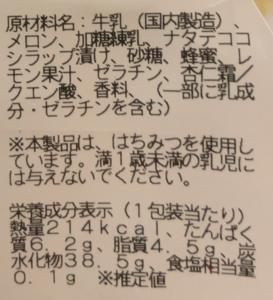 原材料名：牛乳（国内製造）、
メロン、加糖練乳、ナタデココ
シラップ漬け、砂糖、蜂蜜、レ
モン果汁、ゼラチン、杏仁霜／
クエン酸、香料、（一部に乳成
分・ゼラチンを含む）
※本製品は、はちみつを使用し
ています。満１歳未満の乳児に
は与えないでください。
栄養成分表示（１包装当たり）
熱量２１４ｋｃａｌ、たんぱく
質６．２ｇ、脂質４．５ｇ、炭
水化物３８．５ｇ、食塩相当量
０．１ｇ　※推定値